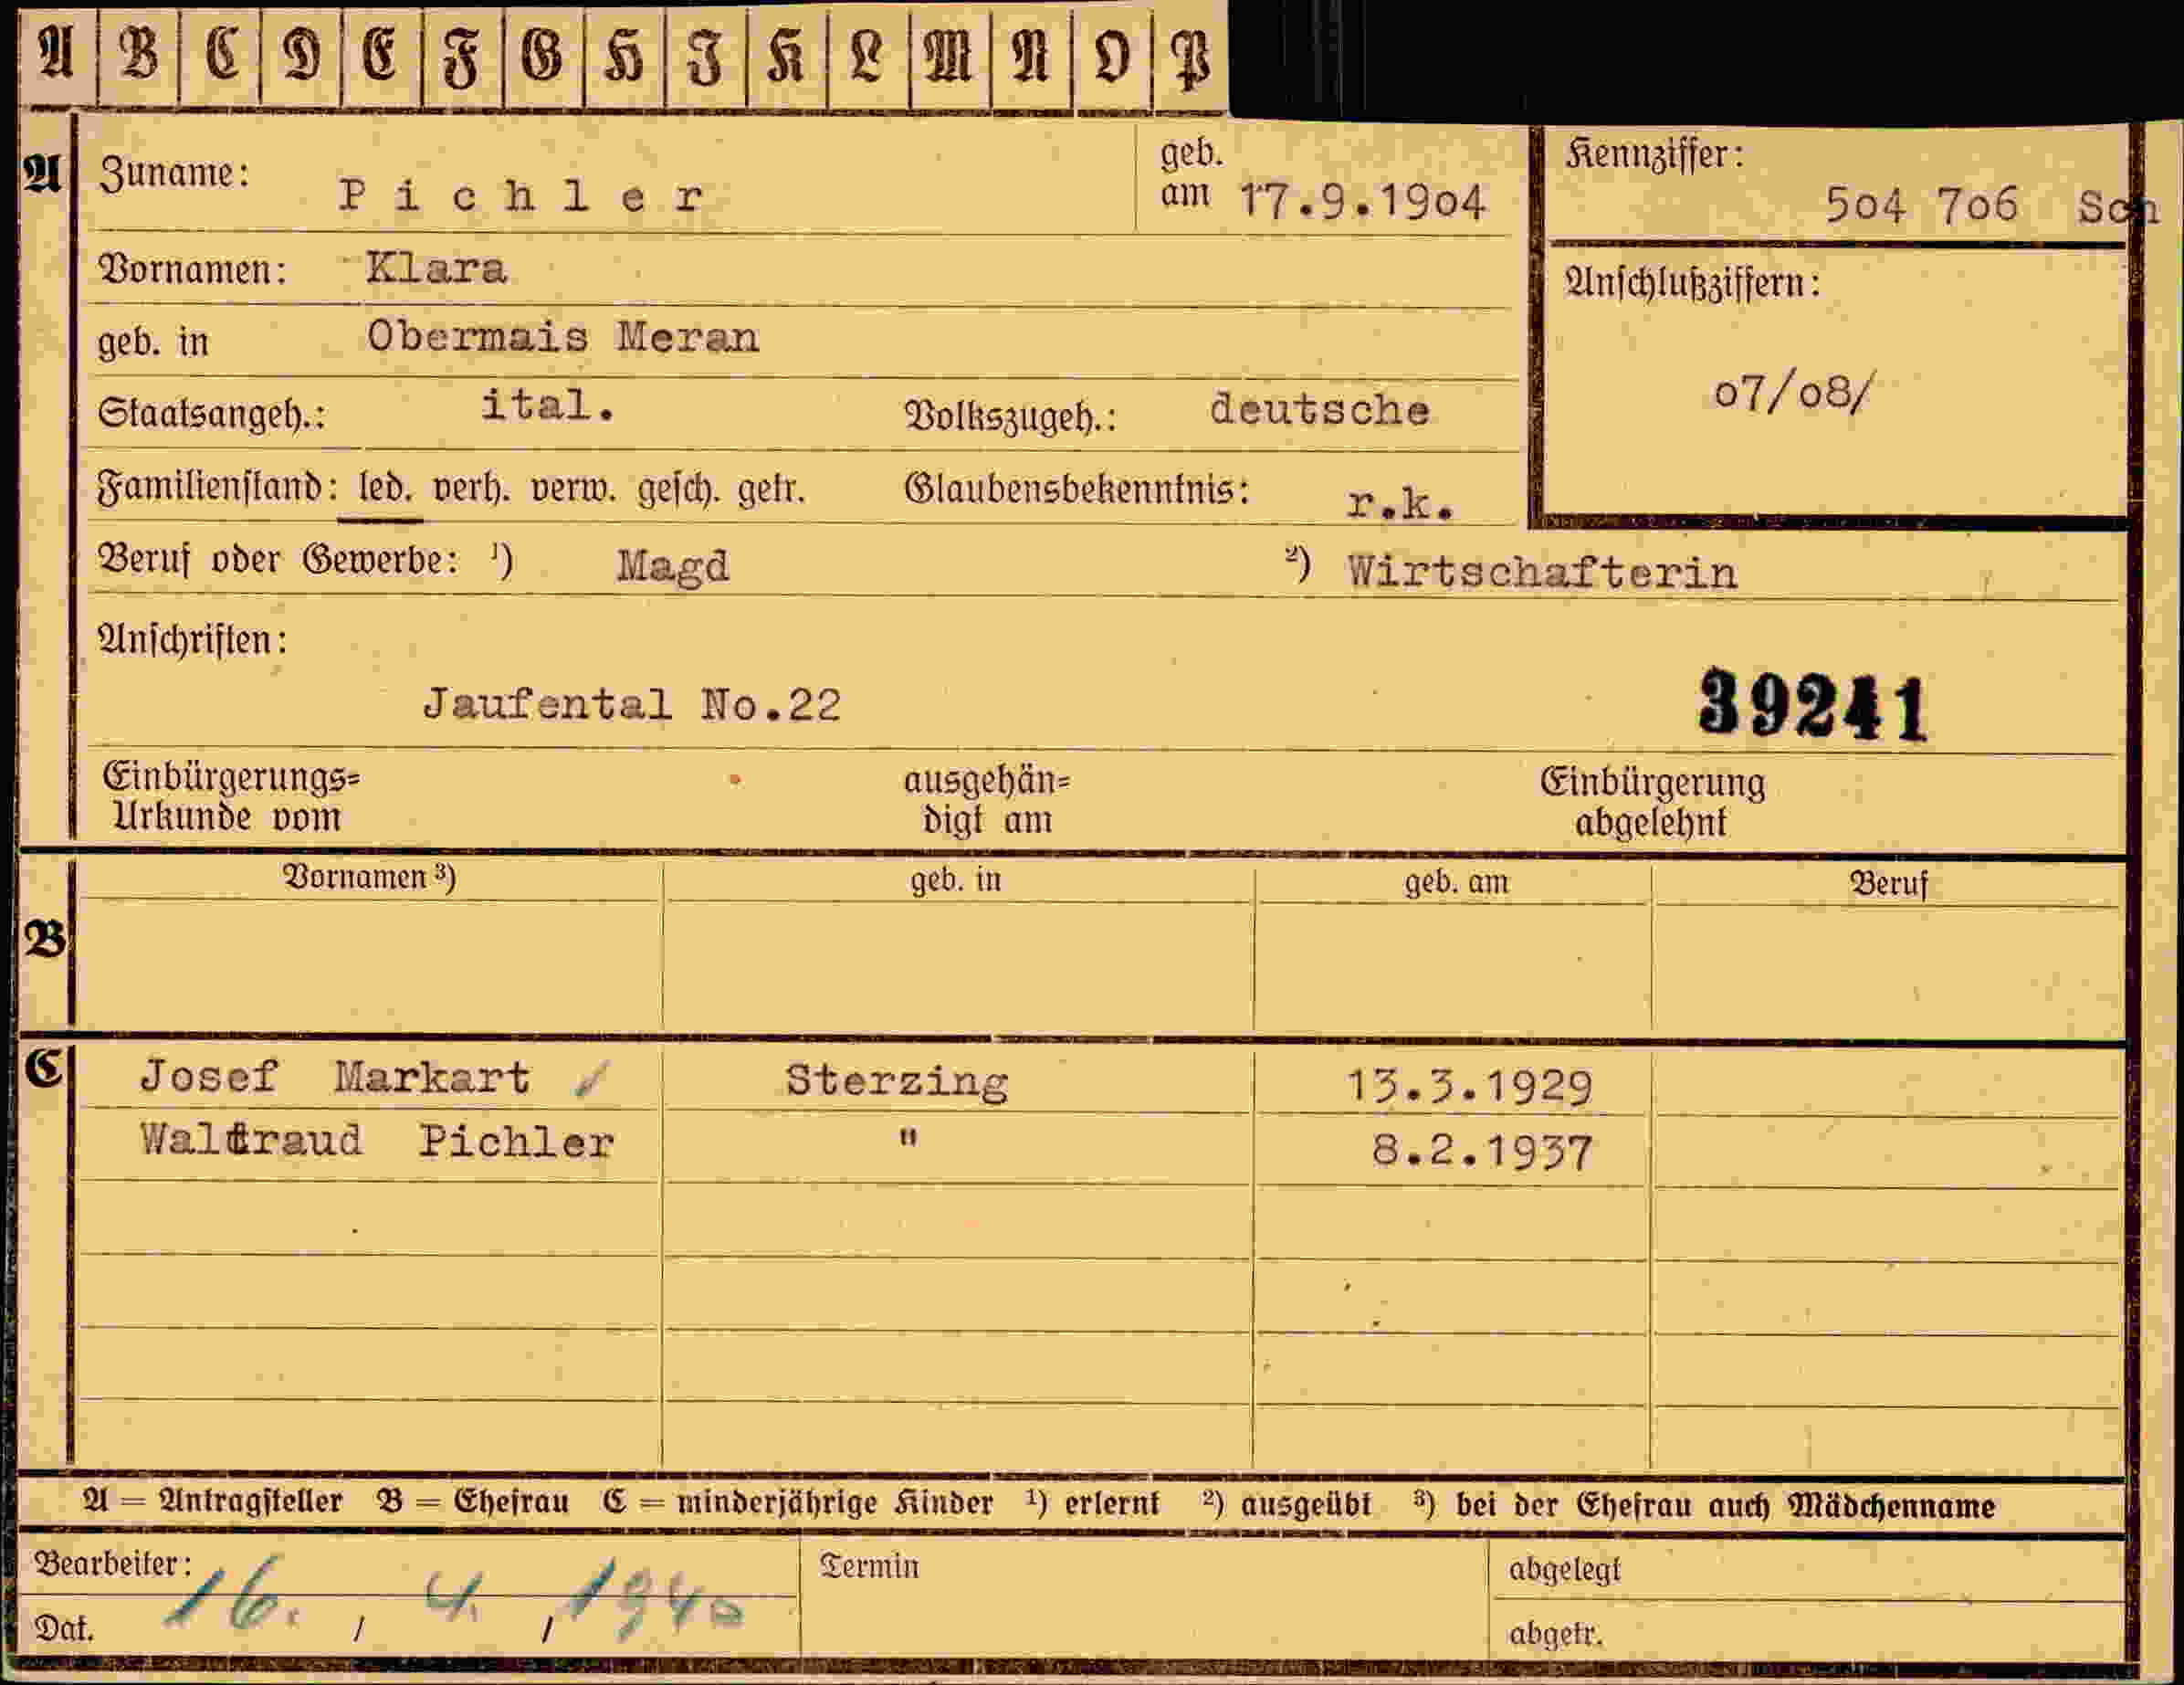 A B C D E F G H J K L M N O P
A Zuname: Pichler geb. am 17.9.1904 Kennziffer: 504 706 Sch
Vornamen: Klara Anschlußziffern:
geb. in Obermais Meran
Staatsangeh.: ital. Volkszugeh.: deutsche 07/08/
Familienstand: led. verh. verw. gesch. getr. Glaubensbekenntnis: r.k.
Beruf oder Gewerbe: ¹) Magd ²) Wirtschafterin
Anschriften:
Jaufental No.22 39241
Einbürgerungs= ausgehän= Einbürgerung
Urkunde vom digt am abgelehnt
Vornamen ³) geb. in geb. am Beruf
B
C Josef Markart / Sterzing 13.3.1929
Waltraud Pichler " 8.2.1937
A = Antragsteller B = Ehefrau C = minderjährige Kinder ¹) erlernt ²) ausgeübt ³) bei der Ehefrau auch Mädchenname
Bearbeiter: Termin abgelegt
Dat. 16. / 4. / 1940 abgetr.